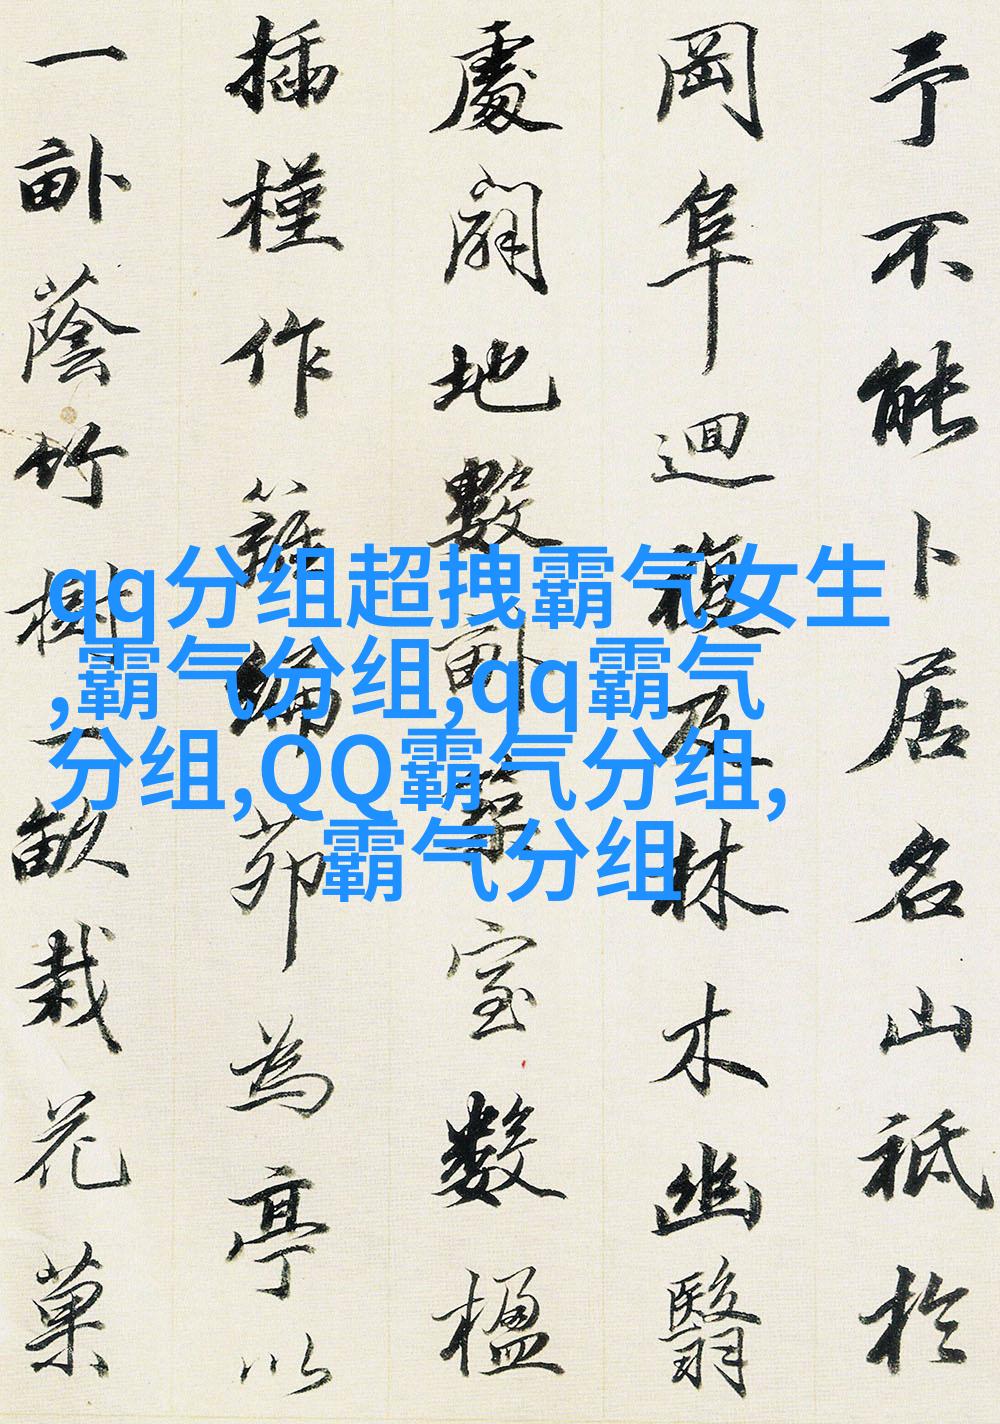 予不能卜居名山祗於
岡阜迴複及林木幽翳
處闢地數畝築室數楹
插槿作籬編茆為亭以
一畝蔭竹樹一畝栽花菓
qq分组超拽霸气女生
,霸气分组,qq霸气
分组,QQ霸气分组,
霸气分组